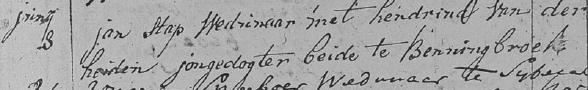 juny jan Stap Wedunaar met hendrina Van der
8 heiden jongedogter beide te Benningbroek
Wedunaar te Sybecar